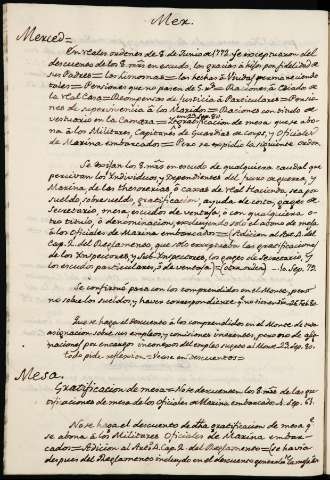 Mer.
Merced=
En reales ordenes de 8 de Junio de 1772 se exceptuaron del
descuento de los 8 mrs en escudo, las gracias à hijos por fidelidad de
sus Padres= las limosnas= las hechas à Viudas por una vez
Pensiones que no pasen de = Raciones à Criado de
la Rl Casa= Recompensas de Justicia à Particulares= Pensio-
nes de supervivencia à los Maridos=
vestuario en la Camara= Gratificacion de mesa, que se abo-
na à los Militares, Capitanes de Guardias de corps, y Oficiales
de Marina embarcados= Pero se expidio la siguiente orden
Se exijan los 8 mrs en escudo de qualquiera caudal que
percivan los Individuos y Dependientes del fuero de guerra, y
Marina de las thesorerias ò caxas de real Hacienda, sea por
sueldo, sobresueldo, gratificacion, ayuda de costa, gages de
Secretario, mesa, escudos de ventaja, ò con qualquiera o-
tro titulo, ò denominacion, excluyendo solo el abono de mesa
à los Oficiales de Marina embarcados= (Adicion al Art. 4 del
Cap. 2 del Reglamento, que solo exceptuaba las gratificaciones
de los Inspectores, y Sub-Inspectores, los gages de Secretario, y
los escudos particulares, ò de ventaja)= 1. Sep. 79.
Se confirmò para con los comprendidos en el Monte, pero
no sobre los sueldos, y haver correspondiente 26 Feb 80
Que se haga el descuento à los comprendidos en el Monte de su a-
signacion sobre sus empleos, y comisiones inherentes, pero no de asig-
nacional por encargos inconexos del empleo sugeto al Monte. 23 Sep. 80.
todo pide reflexion= Vease en Descuentos=
Mesa.
Gratificacion de mesa= No se descuenten los 8 mrs de las gra-
tificaciones de mesa de los Oficiales de Marina embarcados. Sep. 61.
No se haga el descuento de dha gratificacion de mesa qe
se abona à los Militares Oficiales de Marina embar-
cados= Adicion al Art. 4 Cap. 2 del Reglamento= (se havia
despues del Reglamento incluydo en el descuento